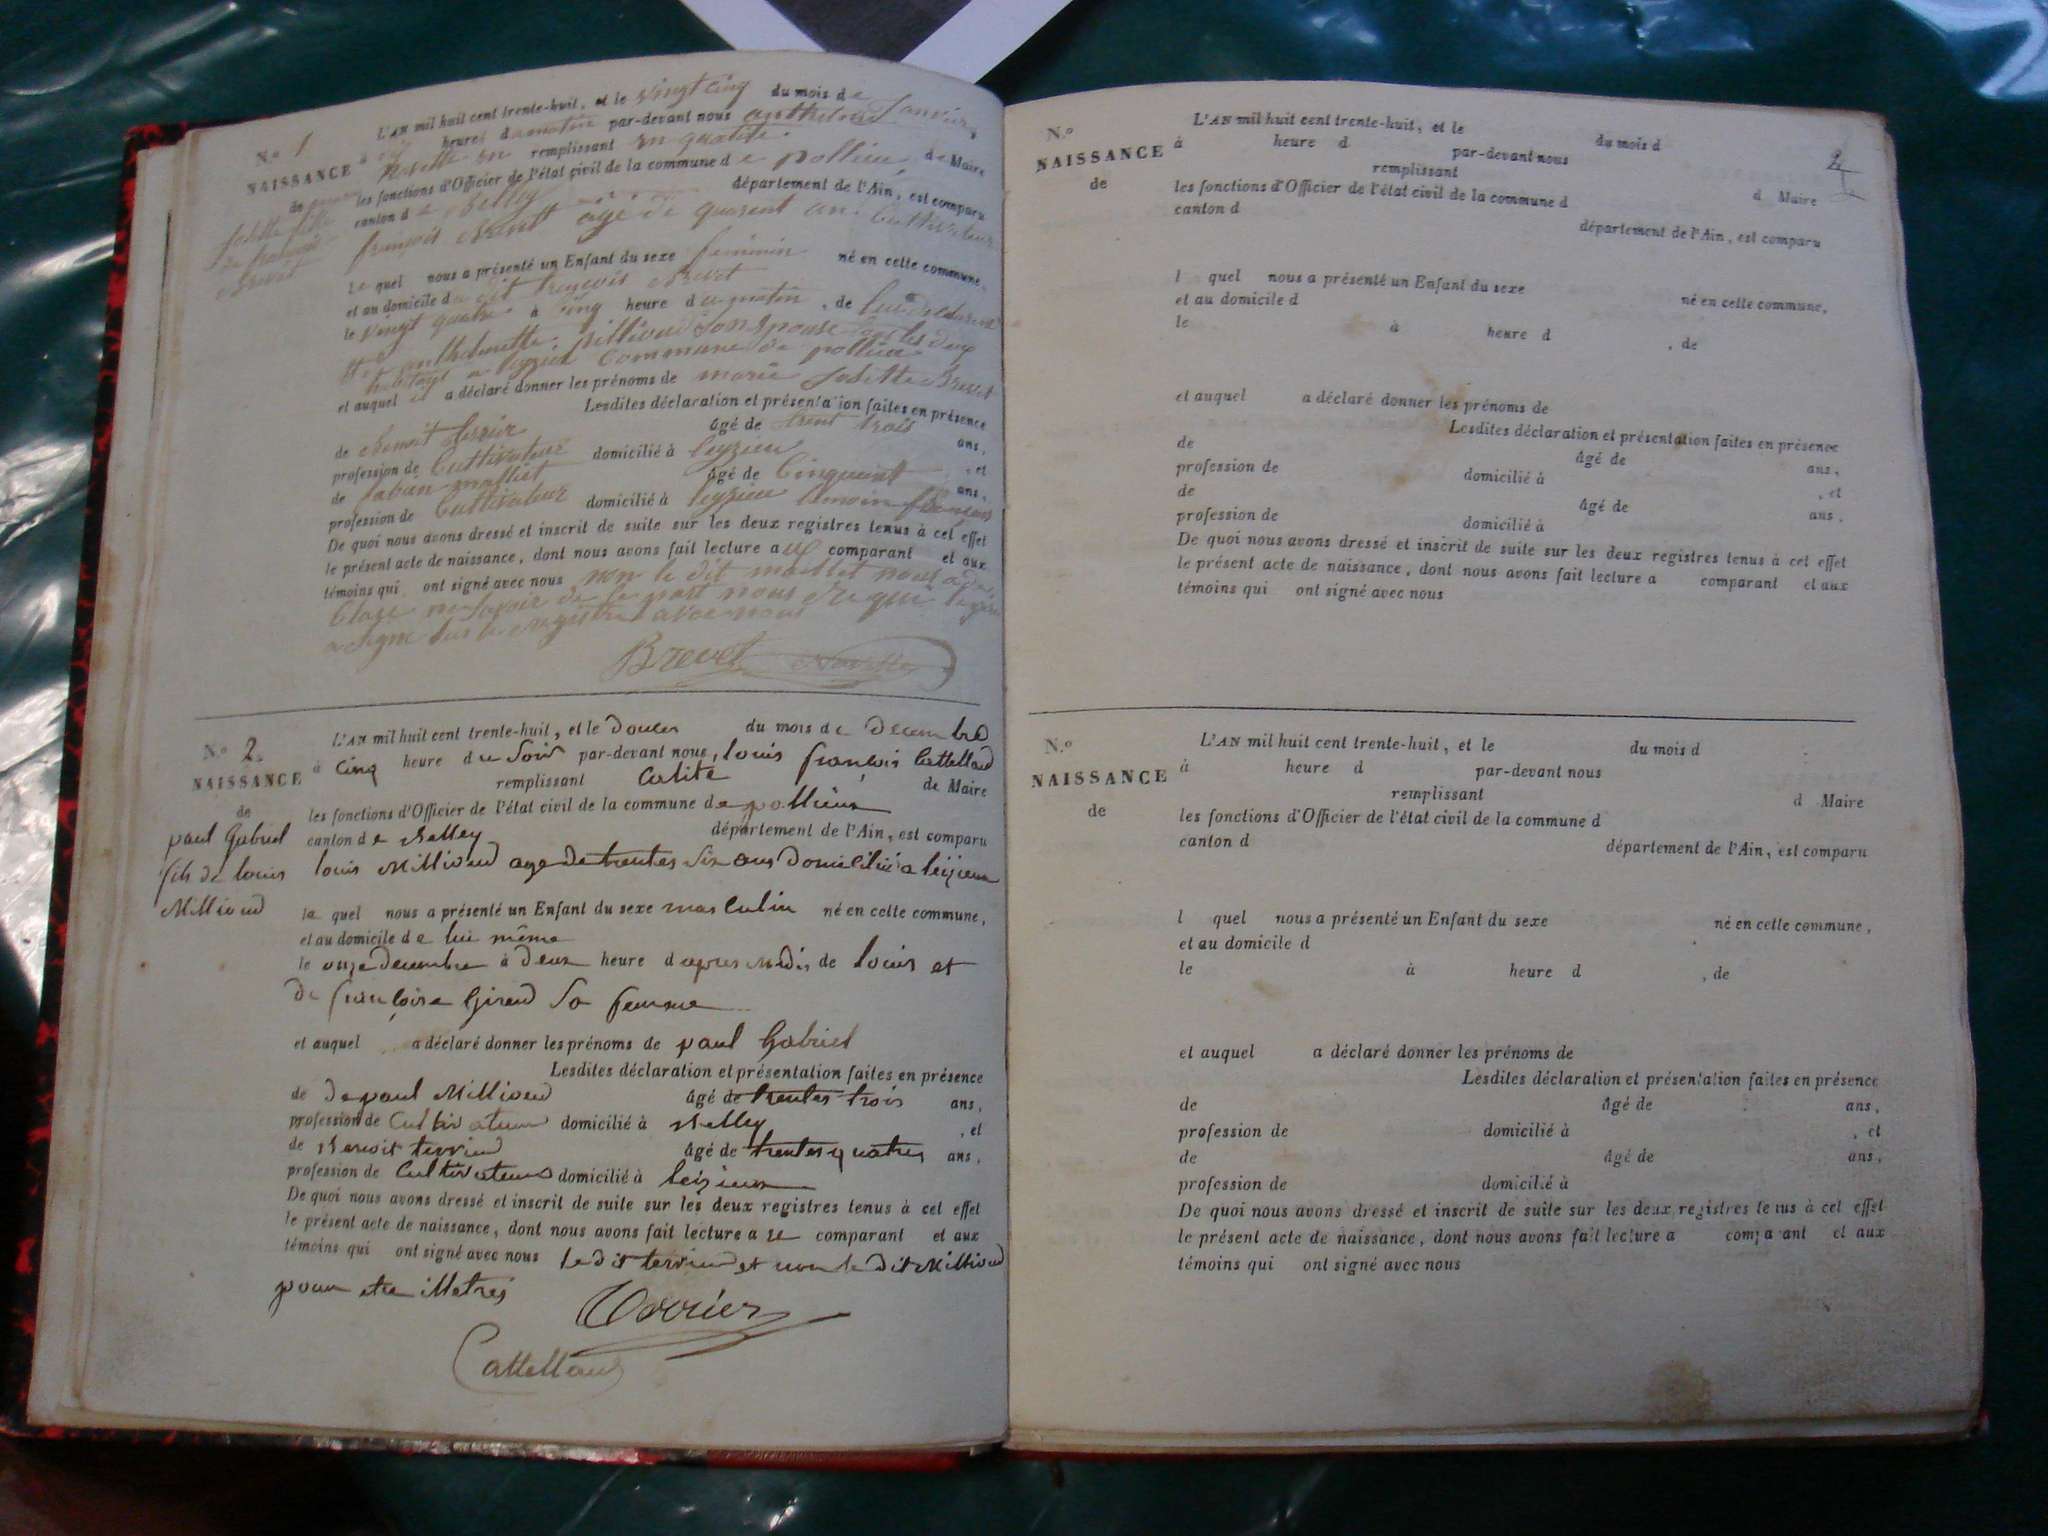 N.º 1
NAISSANCE
de
fille
de françois
Brevet
L'AN mil huit cent trente-huit, et le vingt cinq du mois de Janvier,
à heures du matin par-devant nous
remplissant en qualité de Maire
les fonctions d'Officier de l'état civil de la commune de pollieu
canton de Belley département de l'Ain, est comparu
françois Brevet agé de quarent an Cultivateur
le quel nous a présenté un Enfant du sexe feminin né en cette commune,
et au domicile du dit françois Brevet
le vingt quatre à cinq heure du matin, de
Millioud son epouse les deux
a commune de pollieu
et auquel il a déclaré donner les prénoms de marie Brevet
Lesdites déclaration et présentation faites en présence
de Benoit âgé de trent trois ans,
profession de Cultivateur domicilié à leyzieu, et
de âgé de Cinquent ans,
profession de Cultivateur domicilié à leyzieu temoin
De quoi nous avons dressé et inscrit de suite sur les deux registres tenus à cet effet
le présent acte de naissance, dont nous avons fait lecture au comparant et aux
témoins qui ont signé avec nous non le dit nous a de
savoir de le part nous
a signé sur le registre avec nous
Brevet
N.º 2.
NAISSANCE
de
paul Gabriel
fils de louis
Millioud
L'AN mil huit cent trente-huit, et le douces du mois de Decembre
à cinq heure du Soir par-devant nous, louis françois Cattelland
remplissant Calité de Maire
les fonctions d'Officier de l'état civil de la commune de pollieu
canton de Belley département de l'Ain, est comparu
louis Millioud age de trentes Six ans Domicilié a leizieux
le quel nous a présenté un Enfant du sexe masculin né en cette commune,
et au domicile de lui même
le onze decembre à deux heure d apres Midis de louis et
de françoise Giroud Sa femme
et auquel a déclaré donner les prénoms de paul Gabriel
Lesdites déclaration et présentation faites en présence
de De paul Millioud âgé de trentes trois ans,
profession de Cultivateur domicilié à Belley, et
de Benoit terrier âgé de trentes quatres ans,
profession de Cultivateur domicilié à leizieux
De quoi nous avons dressé et inscrit de suite sur les deux registres tenus à cet effet
le présent acte de naissance, dont nous avons fait lecture a le comparant et aux
témoins qui ont signé avec nous le dit terrier et non le dit Millioud
pour etre illetres
Terrier
Cattelland
2
N.º
NAISSANCE
de
L'AN mil huit cent trente-huit, et le du mois d
à heure d par-devant nous
remplissant d Maire
les fonctions d'Officier de l'état civil de la commune d
canton d département de l'Ain, est comparu
l quel nous a présenté un Enfant du sexe né en cette commune,
et au domicile d
le à heure d , de
et auquel a déclaré donner les prénoms de
Lesdites déclaration et présentation faites en présence
de âgé de ans,
profession de domicilié à , et
de âgé de ans,
profession de domicilié à
De quoi nous avons dressé et inscrit de suite sur les deux registres tenus à cet effet
le présent acte de naissance, dont nous avons fait lecture a comparant et aux
témoins qui ont signé avec nous
N.º
NAISSANCE
de
L'AN mil huit cent trente-huit, et le du mois d
à heure d par-devant nous
remplissant d Maire
les fonctions d'Officier de l'état civil de la commune d
canton d département de l'Ain, est comparu
l quel nous a présenté un Enfant du sexe né en cette commune,
et au domicile d
le à heure d , de
et auquel a déclaré donner les prénoms de
Lesdites déclaration et présentation faites en présence
de âgé de ans,
profession de domicilié à , et
de âgé de ans,
profession de domicilié à
De quoi nous avons dressé et inscrit de suite sur les deux registres tenus à cet effet
le présent acte de naissance, dont nous avons fait lecture a comparant et aux
témoins qui ont signé avec nous